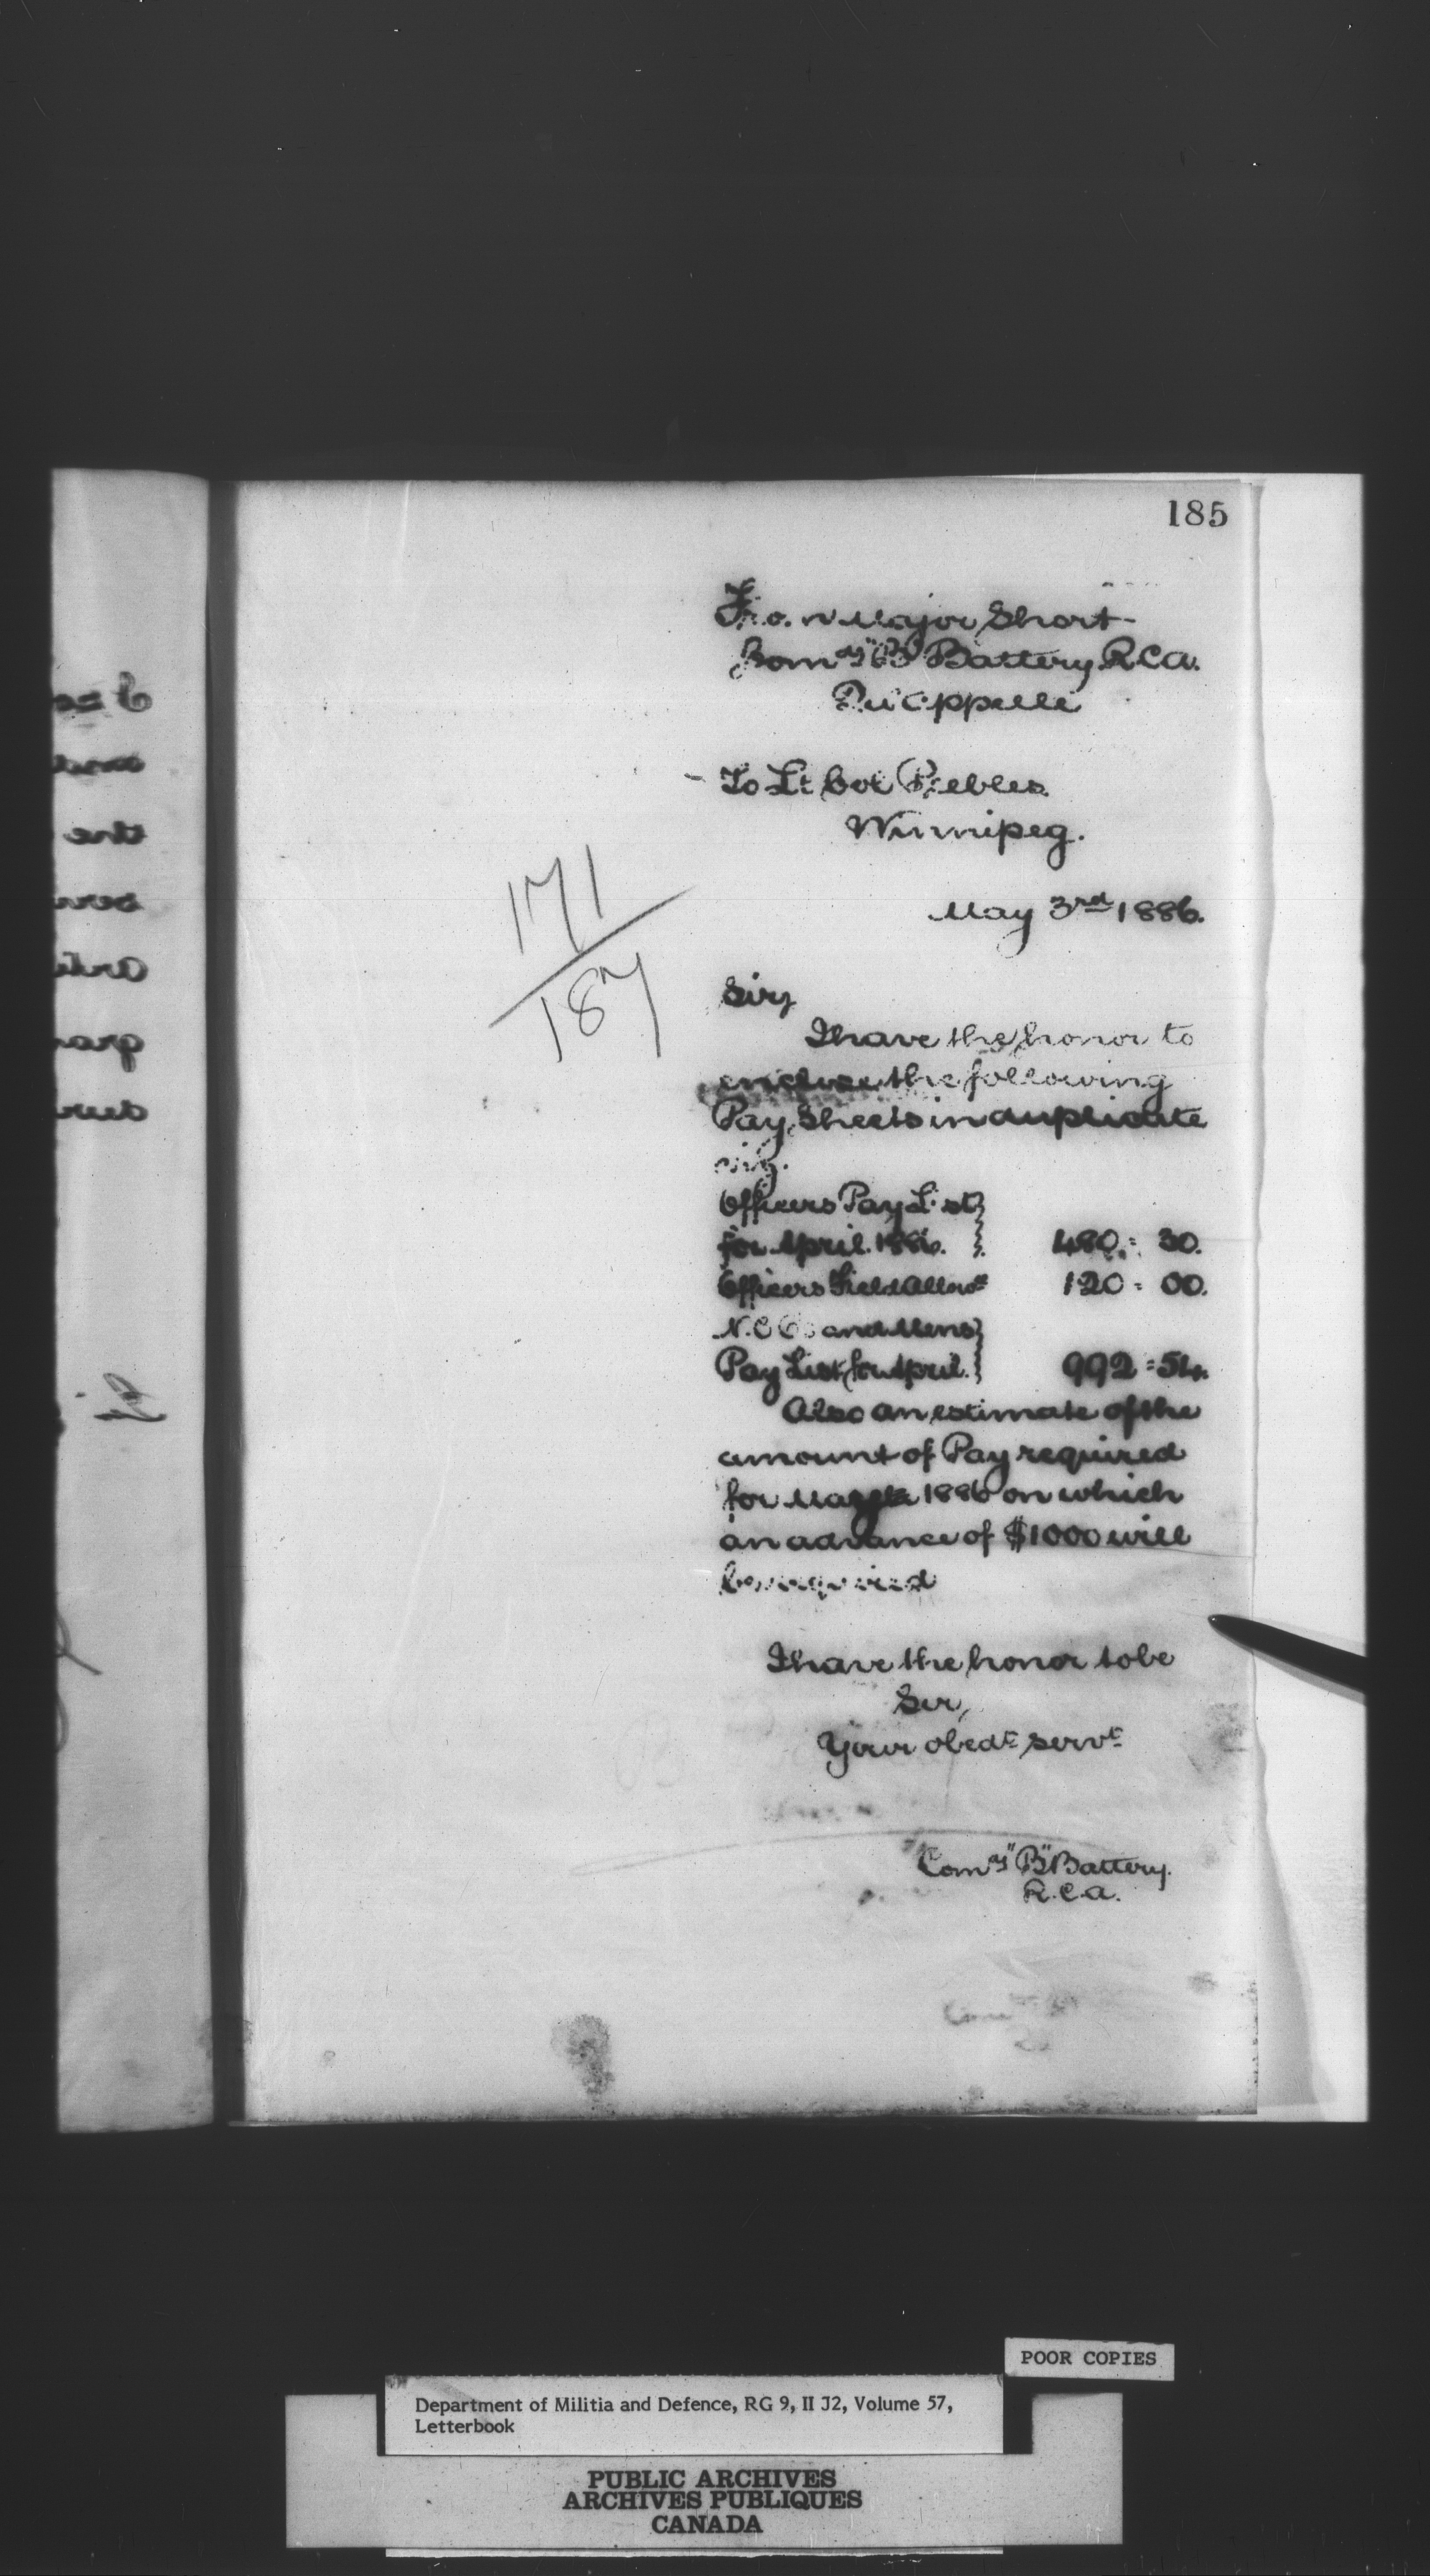 185
From Major Short
Comdg "B" Battery R.C.A.
Qu'Appelle
To Lt Col Peebles
Winnipeg.
May 3rd 1886.
171
187
Sir,
I have the honor to
enclose the following
Pay Sheets in duplicate
viz.
Officers Pay List }
for April 1886. } 480 = 30.
Officers Field Allowce 120 = 00.
N.C.O's and Mens }
Pay List for April. } 992 = 54.
Also an estimate of the
amount of Pay required
for 1886 on which
an advance of $1000 will
be required
I have the honor to be
Sir,
Your obedt servt
Comdg "B" Battery.
R.C.A.
POOR COPIES
Department of Militia and Defence, RG 9, II J2, Volume 57,
Letterbook
PUBLIC ARCHIVES
ARCHIVES PUBLIQUES
CANADA